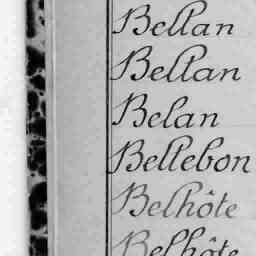 Bellan
Bellan
Belan
Bellebon
Belhôte
Belhôte